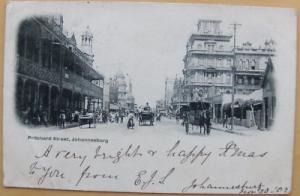 Pritchard Street, Johannesburg
A very bright & happy Xmas
To you from E.J.S. Johannesburg
Nov. 20. '02